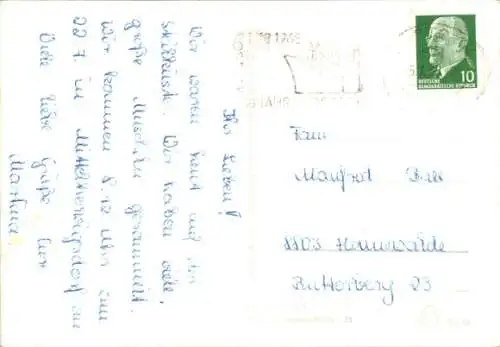 Ihr Lieben!
Wir waren heut auf der
Wir haben viele,
große Muscheln gesammelt.
Wir kommen 8.12 Uhr am
22.7. in Mittelherwigsdorf an
Viele liebe Grüße
Martina.
10
DEUTSCHE
DEMOKRATISCHE REPUBLIK
Fam
Manfred
8803 Hainewalde
Butterberg 23